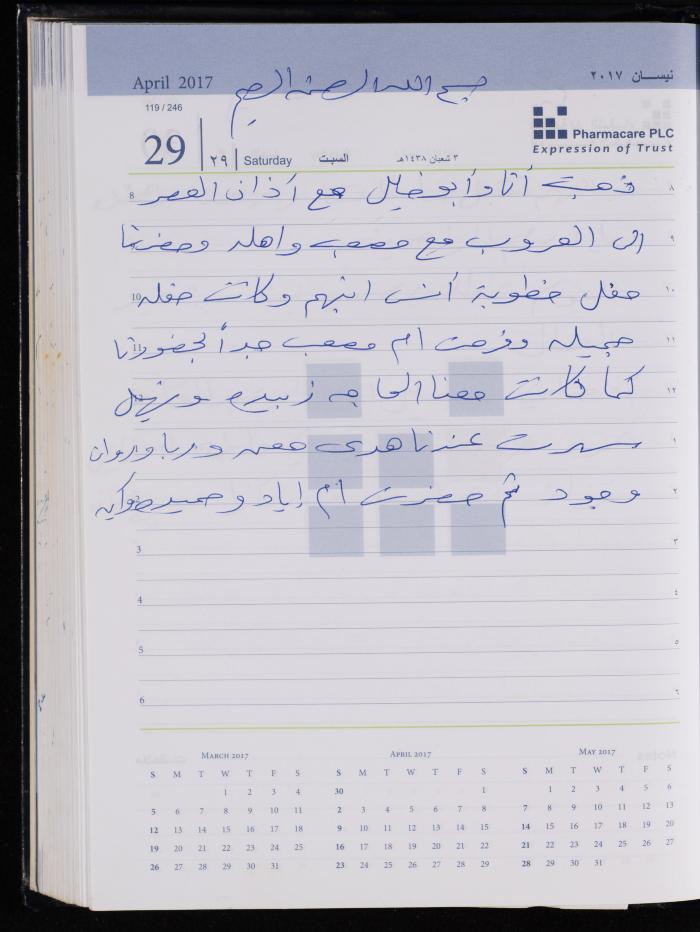 April 2017 بسم الله الرحمن الرحيم نيسان ٢٠١٧
119 / 246
29 ٢٩ Saturday السبت ٣ شعبان ١٤٣٨هـ
Pharmacare PLC
Expression of Trust
8 ذهبت أنا وأبو خليل مع أذان العصر ٨
9 الى الغروب مع مصعب واهله وحضرنا ٩
10 حفل خطوبة أنس ابنهم وكانت حفله ١٠
11 جميله وفرحت ام مصعب جداً لحضورنا ١١
12 كما كانت معنا الحاجه زبيده ١٢
سهرت عندنا هدى وربا وروان ١
وجود ثم حضرت ام إياد وحميده ٢
3 ٣
4 ٤
5 ٥
6 ٦
March 2017
S M T W T F S
1 2 3 4
5 6 7 8 9 10 11
12 13 14 15 16 17 18
19 20 21 22 23 24 25
26 27 28 29 30 31
April 2017
S M T W T F S
30 1
2 3 4 5 6 7 8
9 10 11 12 13 14 15
16 17 18 19 20 21 22
23 24 25 26 27 28 29
May 2017
S M T W T F S
1 2 3 4 5 6
7 8 9 10 11 12 13
14 15 16 17 18 19 20
21 22 23 24 25 26 27
28 29 30 31